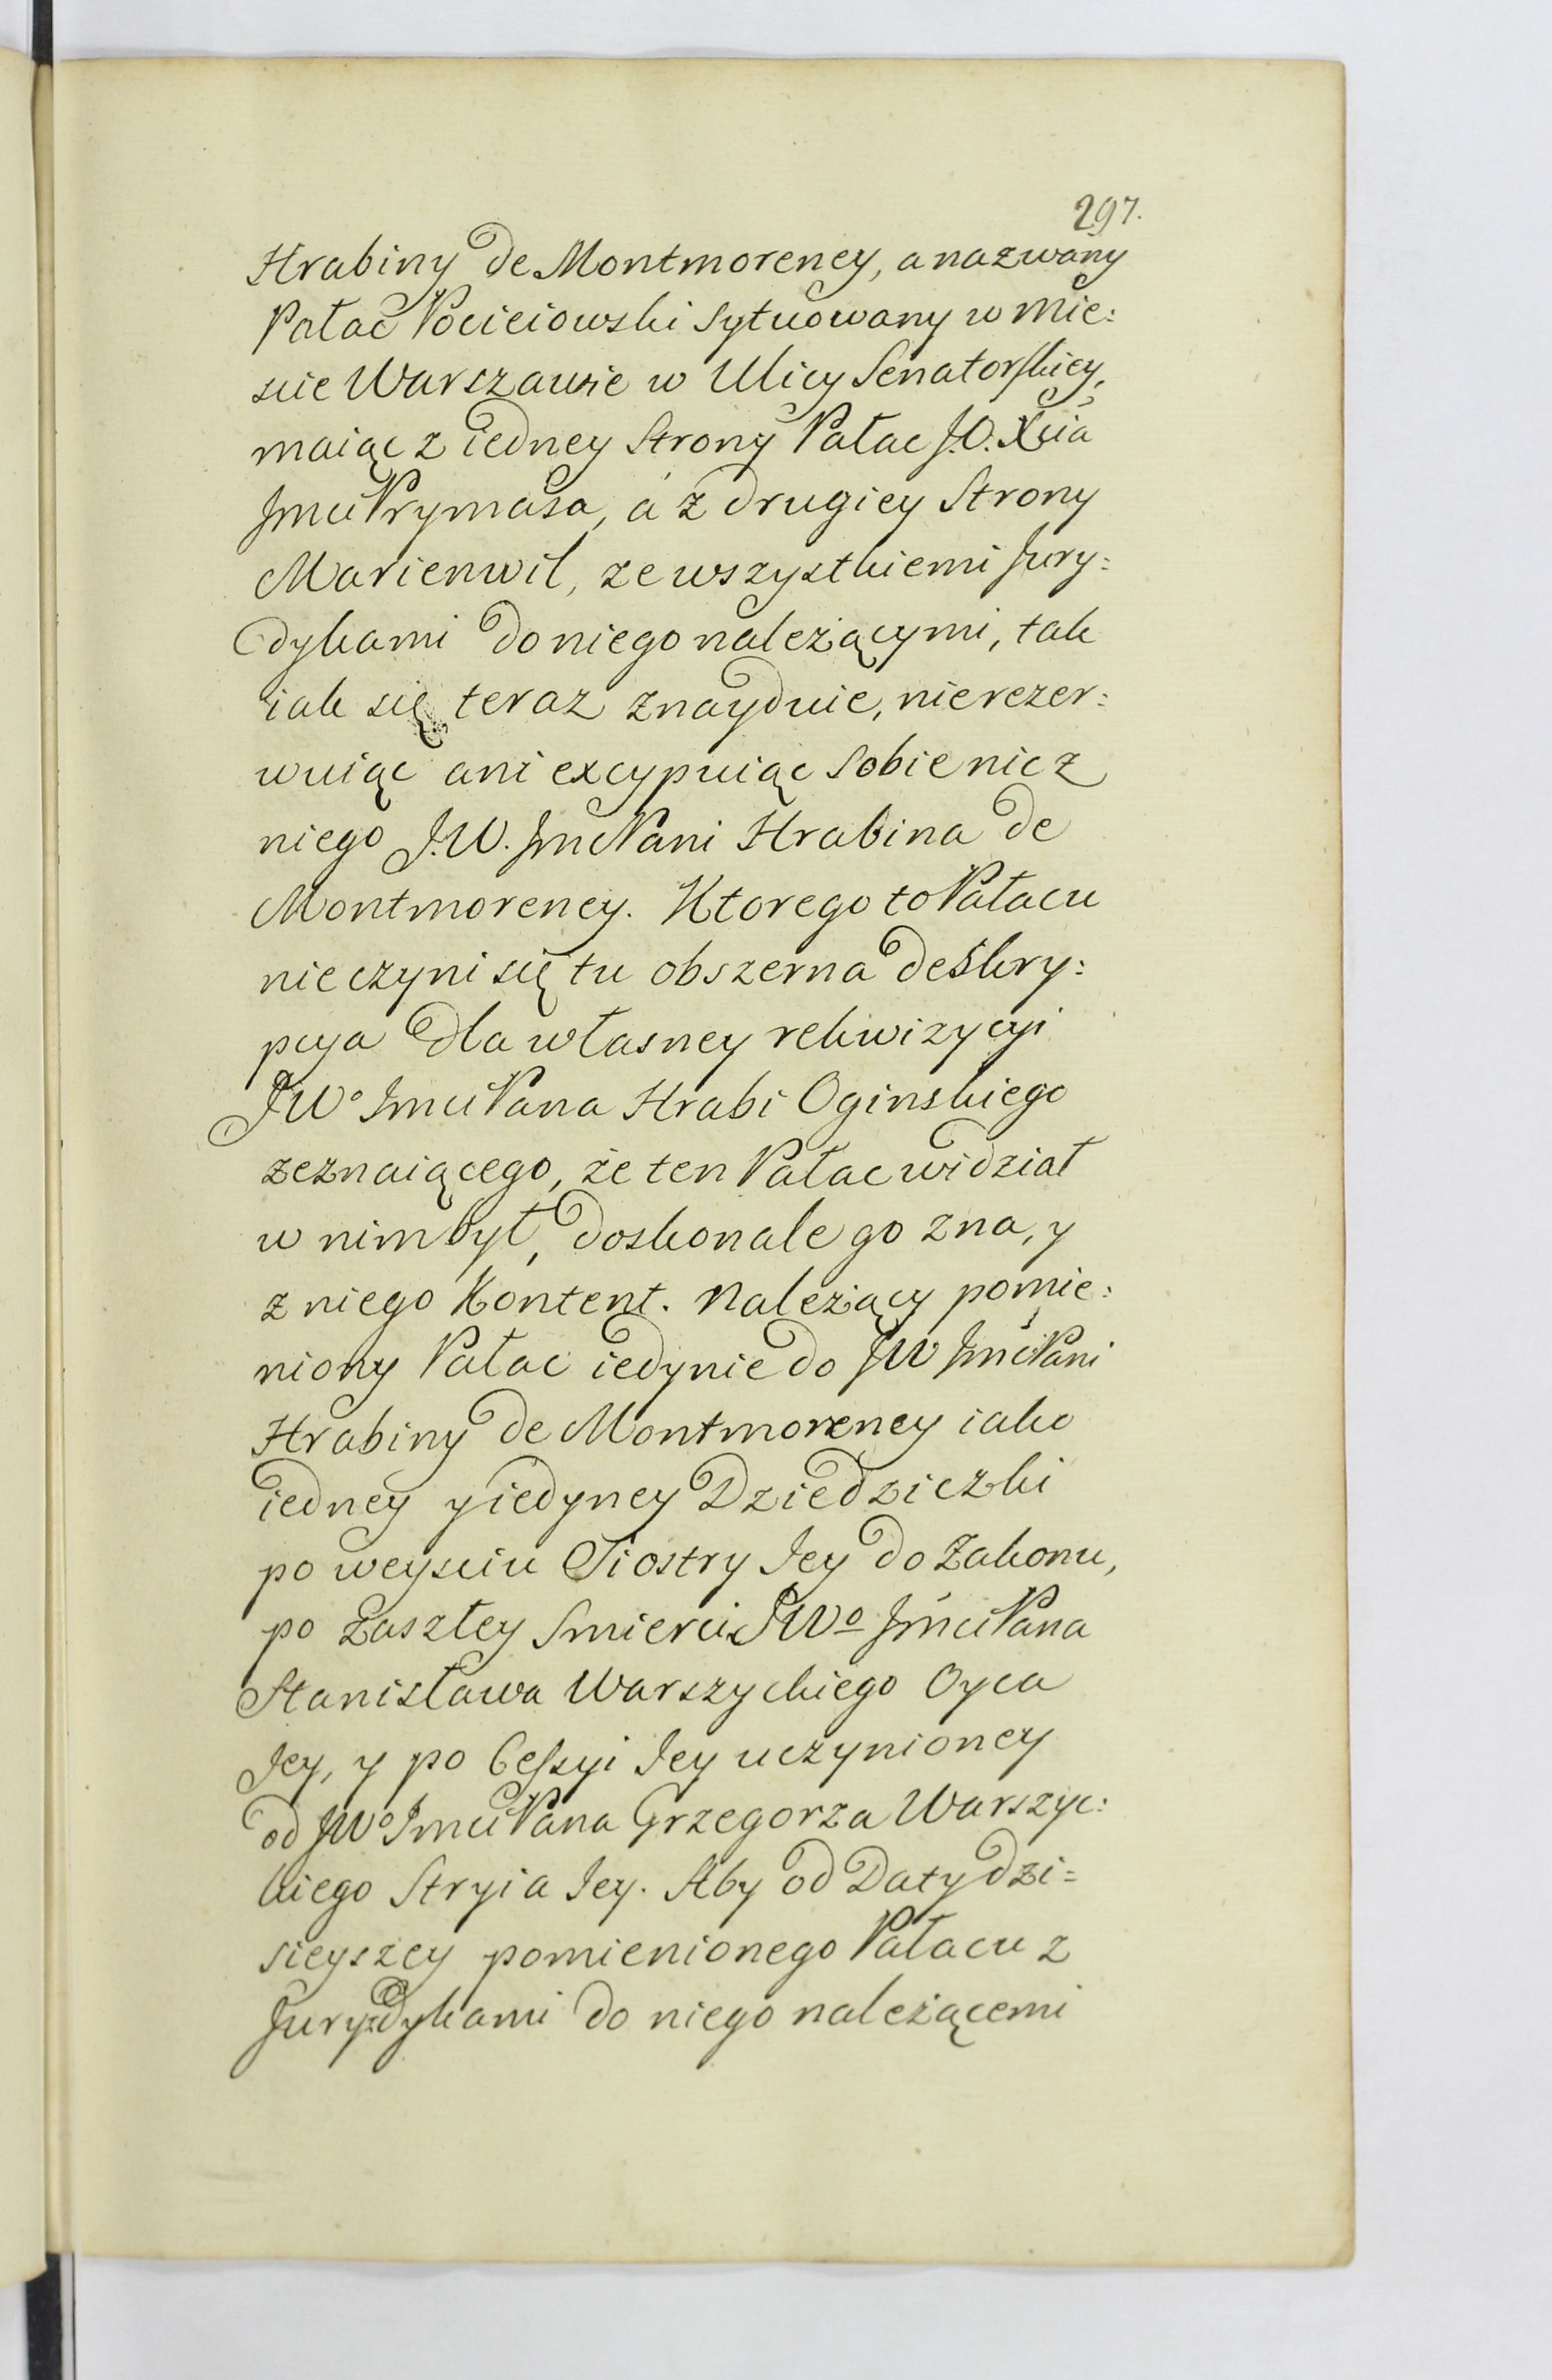 297.
Hrabiny de Montmorency, a nazwany
Pałac Pociejowski sytuowany w Mie:
scie Warszawie w Ulicy Senatorskiey,
maiąc z iedney Strony Pałac J.O. Xcia
Jmci Prymasa, a z drugiey Strony
Marienwil, ze wszystkiemi Jury:
dykami do niego należącymi, tak
iak się teraz znayduie, nierezer:
wuiąc ani excypuiąc Sobie nic z
niego J.W. Jmć Pani Hrabina de
Montmorency. Ktorego to Pałacu
nie czyni się tu obszerna deskry:
pcya dla własney rekwizycyi
JWo Jmci Pana Hrabi Oginskiego
zeznaiącego, że ten Pałac widział
w nim był, doskonale go zna, y
z niego Kontent. Należący pomie:
niony Pałac iedynie do JW Jmć Pani
Hrabiny de Montmorency iako
iedney y iedyney Dziedziczki
po weysciu Siostry Jey do Zakonu,
po zaszłey Smierci JWo Jmci Pana
Stanisława Warszyckiego Oyca
Jey, y po Cessyi Jey uczynioney
od JWo Jmci Pana Grzegorza Warszyc:
kiego Stryia Jey. Aby od Daty dzi=
sieyszey pomienionego Pałacu z
Jurydykami do niego należącemi